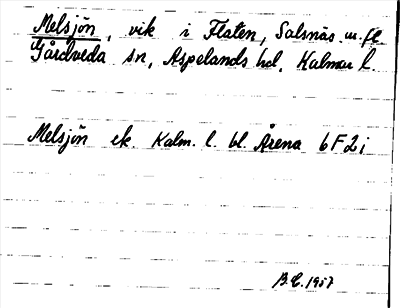 Melsjön, vik i Flaten, Salsnäs m. fl.
Gårdveda sn, Aspelands hd, Kalmar l.
Melsjön ek. Kalm. l. bl. Årena 6F2i
B.E. 1957